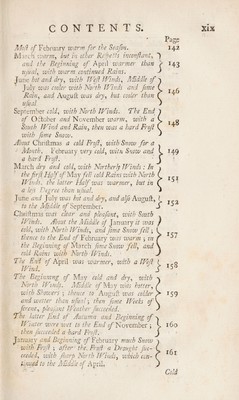 CONTENTS. xix
Page
Most of February warm for the Season. 142
March warm, but in other Respects inconstant,
and the Beginning of April warmer than
usual, with warm continued Rains. 143
June hot and dry, with West Winds, Middle of
July was cooler with North Winds and some
Rain, and August was dry, but cooler than
usual 146
September cold, with North Winds. The End
of October and November warm, with a
South Wind and Rain, then was a hard Frost
with some Snow. 148
About Christmas a cold Frost, with Snow for a
Month. February very cold, with Snow and
a hard Frost. 149
March dry and cold, with Northerly Winds: In
the first Half of May fell cold Rains with North
Winds. the latter Half was warmer, but in
a less Degree than usual. 151
June and July was hot and dry, and also August,
to the Middle of September. 152
Christmas was clear and pleasant, with South
Winds. About the Middle of January it was
cold, with North Winds, and some Snow fell;
thence to the End of February was warm; in
the Beginning of March some Snow fell, and
cold Rains with North Winds. 157
The End of April was warmer, with a West
Wind. 158
The Beginning of May cold and dry, with
North Winds. Middle of May was hotter,
with Showers; thence to August was colder
and wetter than usual; then some Weeks of
serene, pleasant Weather succeeded. 159
The latter End of Autumn and Beginning of
Winter were wet to the End of November;
then succeeded a hard Frost. 160
January and Beginning of February much Snow
with Frost; after the Frost a Drought suc-
ceeded, with sharp North Winds, which con-
tinued to the Middle of April. 161
Cold